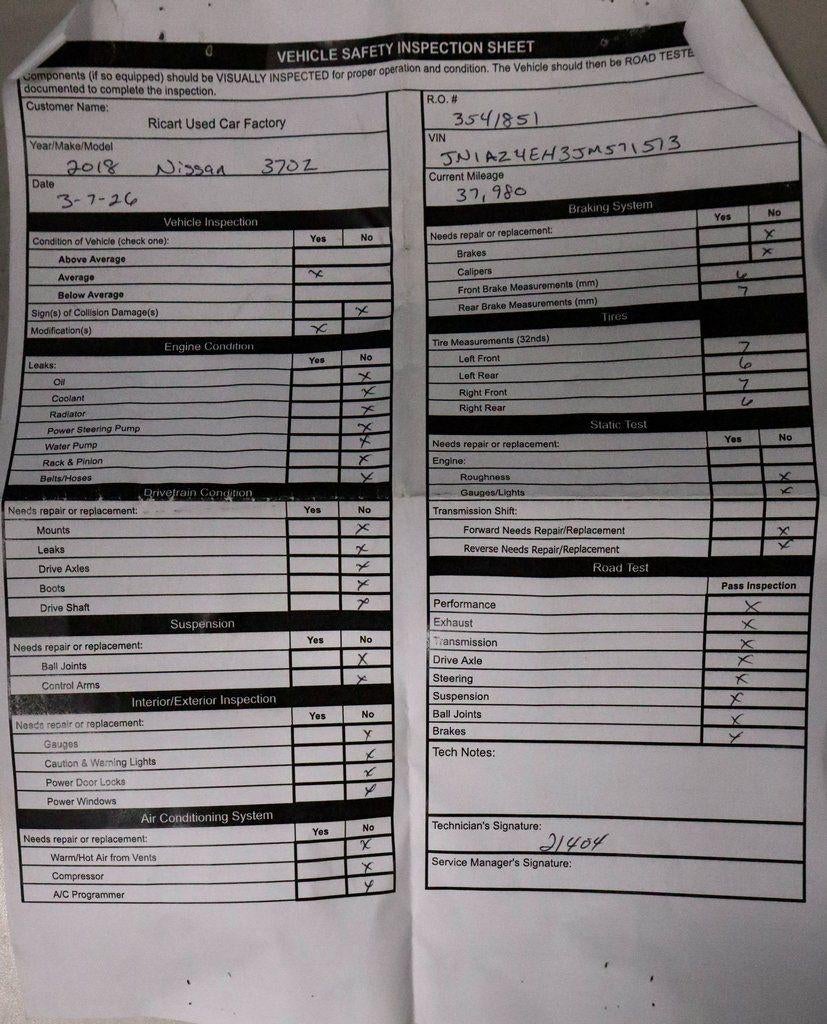 VEHICLE SAFETY INSPECTION SHEET
Components (if so equipped) should be VISUALLY INSPECTED for proper operation and condition. The Vehicle should then be ROAD TESTE
documented to complete the inspection.
Customer Name:
Ricart Used Car Factory
Year/Make/Model
2018 Nissan 370Z
Date
3-7-26
Vehicle Inspection
Condition of Vehicle (check one): Yes No
Above Average
Average X
Below Average
Sign(s) of Collision Damage(s) X
Modification(s) X
Engine Condition
Leaks: Yes No
Oil X
Coolant X
Radiator X
Power Steering Pump X
Water Pump X
Rack & Pinion X
Belts/Hoses X
Drivetrain Condition
Needs repair or replacement: Yes No
Mounts X
Leaks X
Drive Axles X
Boots X
Drive Shaft X
Suspension
Needs repair or replacement: Yes No
Ball Joints X
Control Arms X
Interior/Exterior Inspection
Needs repair or replacement: Yes No
Gauges X
Caution & Warning Lights X
Power Door Locks X
Power Windows X
Air Conditioning System
Needs repair or replacement: Yes No
Warm/Hot Air from Vents X
Compressor X
A/C Programmer X
R.O. #
3541851
VIN
JN1AZ4EH3JM571573
Current Mileage
37,980
Braking System
Needs repair or replacement: Yes No
Brakes X
Calipers X
Front Brake Measurements (mm) 6
Rear Brake Measurements (mm) 7
Tires
Tire Measurements (32nds)
Left Front 7
Left Rear 6
Right Front 7
Right Rear 6
Static Test
Needs repair or replacement: Yes No
Engine:
Roughness X
Gauges/Lights X
Transmission Shift:
Forward Needs Repair/Replacement X
Reverse Needs Repair/Replacement X
Road Test
Pass Inspection
Performance X
Exhaust X
Transmission X
Drive Axle X
Steering X
Suspension X
Ball Joints X
Brakes X
Tech Notes:
Technician's Signature:
21404
Service Manager's Signature: